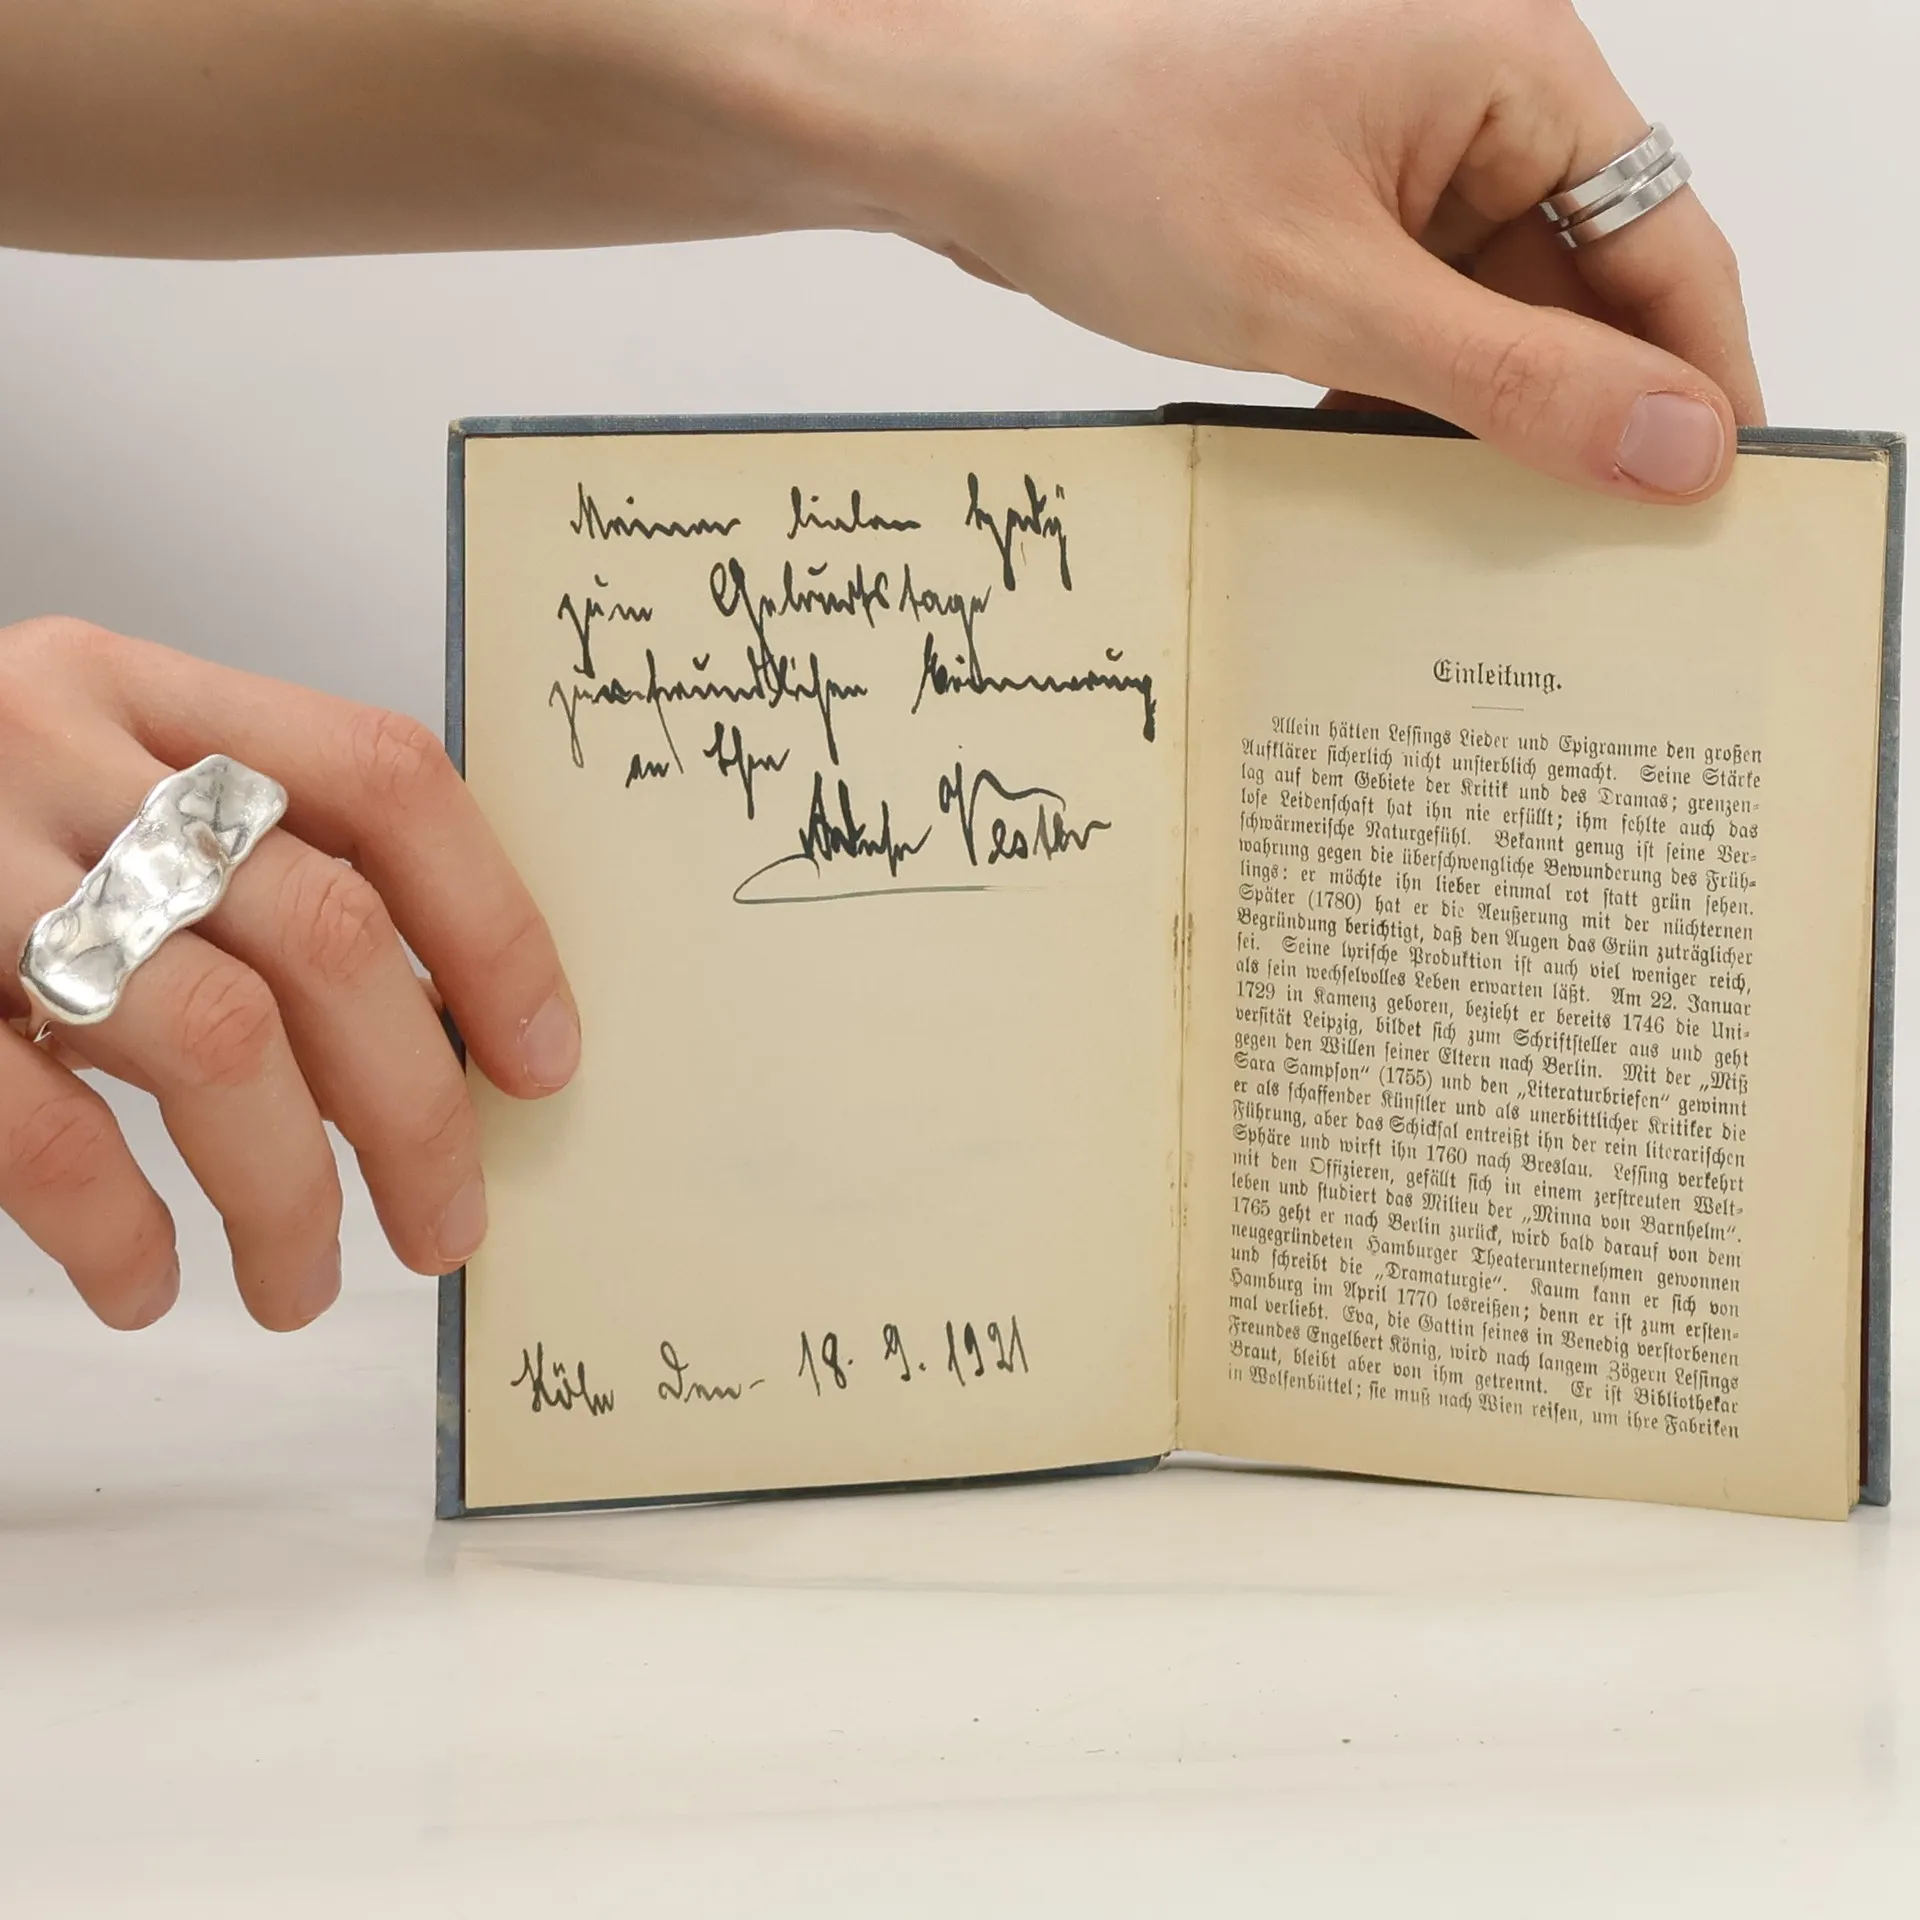 Meiner lieben
zum Geburtstage
zur freundlichen Erinnerung
an Ihre
Vester
Köln den - 18. 9. 1921
Einleitung.
Allein hätten Lessings Lieder und Epigramme den großen
Aufklärer sicherlich nicht unsterblich gemacht. Seine Stärke
lag auf dem Gebiete der Kritik und des Dramas; grenzen-
lose Leidenschaft hat ihn nie erfüllt; ihm fehlte auch das
schwärmerische Naturgefühl. Bekannt genug ist seine Ver-
wahrung gegen die überschwengliche Bewunderung des Früh-
lings: er möchte ihn lieber einmal rot statt grün sehen.
Später (1780) hat er die Aeußerung mit der nüchternen
Begründung berichtigt, daß den Augen das Grün zuträglicher
sei. Seine lyrische Produktion ist auch viel weniger reich,
als sein wechselvolles Leben erwarten läßt. Am 22. Januar
1729 in Kamenz geboren, bezieht er bereits 1746 die Uni-
versität Leipzig, bildet sich zum Schriftsteller aus und geht
gegen den Willen seiner Eltern nach Berlin. Mit der „Miß
Sara Sampson“ (1755) und den „Literaturbriefen“ gewinnt
er als schaffender Künstler und als unerbittlicher Kritiker die
Führung, aber das Schicksal entreißt ihn der rein literarischen
Sphäre und wirft ihn 1760 nach Breslau. Lessing verkehrt
mit den Offizieren, gefällt sich in einem zerstreuten Welt-
leben und studiert das Milieu der „Minna von Barnhelm“.
1765 geht er nach Berlin zurück, wird bald darauf von dem
neugegründeten Hamburger Theaterunternehmen gewonnen
und schreibt die „Dramaturgie“. Kaum kann er sich von
Hamburg im April 1770 losreißen; denn er ist zum ersten-
mal verliebt. Eva, die Gattin seines in Venedig verstorbenen
Freundes Engelbert König, wird nach langem Zögern Lessings
Braut, bleibt aber von ihm getrennt. Er ist Bibliothekar
in Wolfenbüttel; sie muß nach Wien reisen, um ihre Fabriken